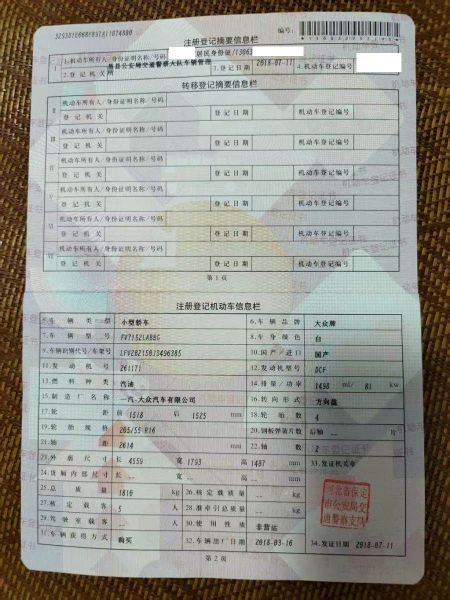 注册登记摘要信息栏
编号:
1.机动车所有人/身份证明名称/号码 居民身份证/13063
2.登记机关 县公安局交通警察大队车辆管理所 3.登记日期 2018-07-11 4.机动车登记编号
转移登记摘要信息栏
机动车所有人/身份证明名称/号码
登记机关 登记日期 机动车登记编号
机动车所有人/身份证明名称/号码
登记机关 登记日期 机动车登记编号
机动车所有人/身份证明名称/号码
登记机关 登记日期 机动车登记编号
机动车所有人/身份证明名称/号码
登记机关 登记日期 机动车登记编号
机动车所有人/身份证明名称/号码
登记机关 登记日期 机动车登记编号
机动车所有人/身份证明名称/号码
登记机关 登记日期 机动车登记编号
第1页
注册登记机动车信息栏
5.车辆类型 小型轿车 6.车辆品牌 大众牌
7.车辆型号 FV7152LABBG 8.车身颜色 白
9.车辆识别代号/车架号 10.国产/进口 国产
11.发动机号 12.发动机型号 DCF
13.燃料种类 汽油 14.排量/功率 1498 ml/ 81 kw
15.制造厂名称 一汽-大众汽车有限公司 16.转向形式 方向盘
17.轮距 前 1518 后 1525 mm 18.轮胎数 4
19.轮胎规格 205/55 R16 20.钢板弹簧片数 后轴 -- 片
21.轴距 2614 mm 22.轴数 2
23.外廓尺寸 长 4559 宽 1793 高 1487 mm 33.发证机关章
24.货厢内部尺寸 长 -- 宽 -- 高 -- mm
25.总质量 1810 kg 26.核定载质量 -- kg
27.核定载客 5 人 28.准牵引总质量 -- kg
29.驾驶室载客 -- 人 30.使用性质 非营运
31.车辆获得方式 购买 32.车辆出厂日期 2018-03-16 34.发证日期 2018-07-11
河北省保定
市公安局交
通警察支队
第2页